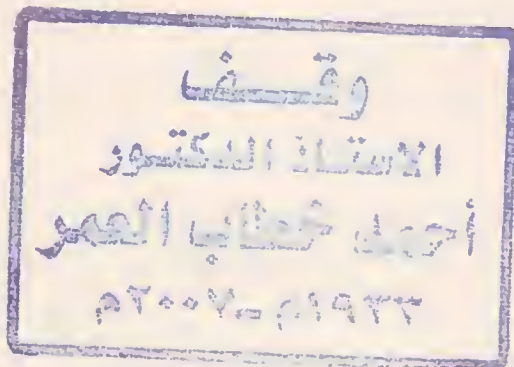 وقف
الاستاذ الدكتور
أحمد خطاب العمر
١٩٣٣م-٢٠٠٧م